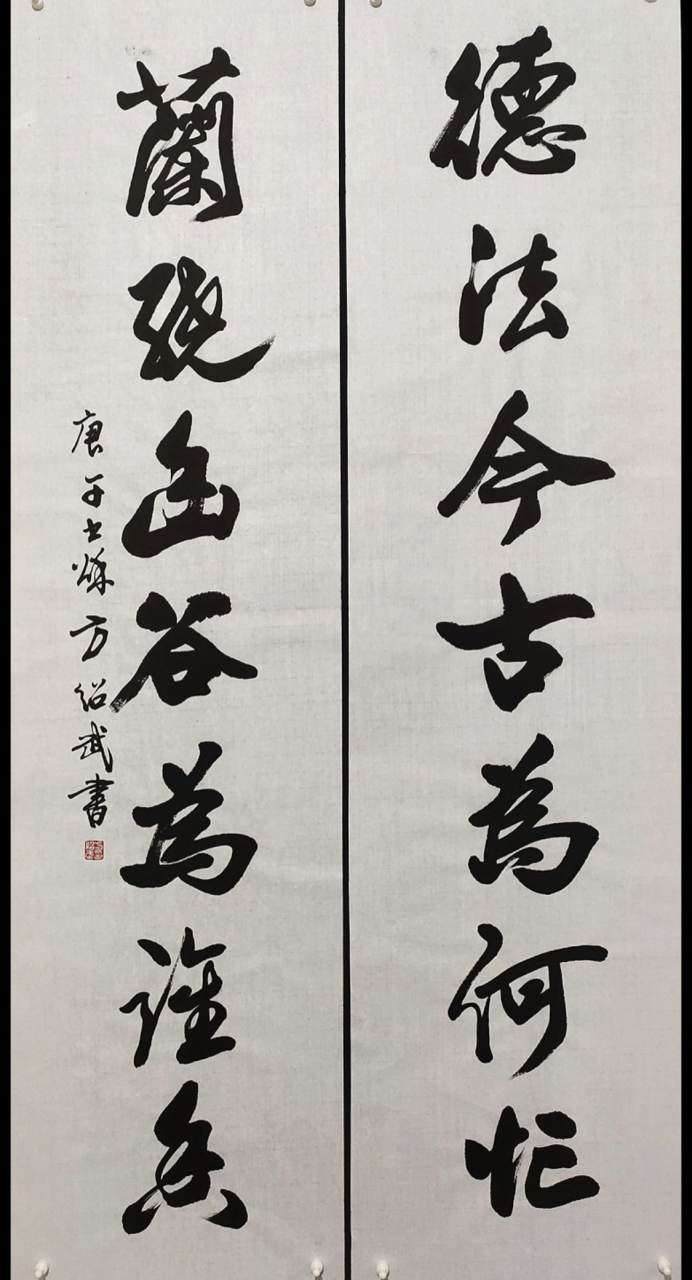 德法今古為何忙
蘭繞幽谷為誰香
庚子大燦方紹武書